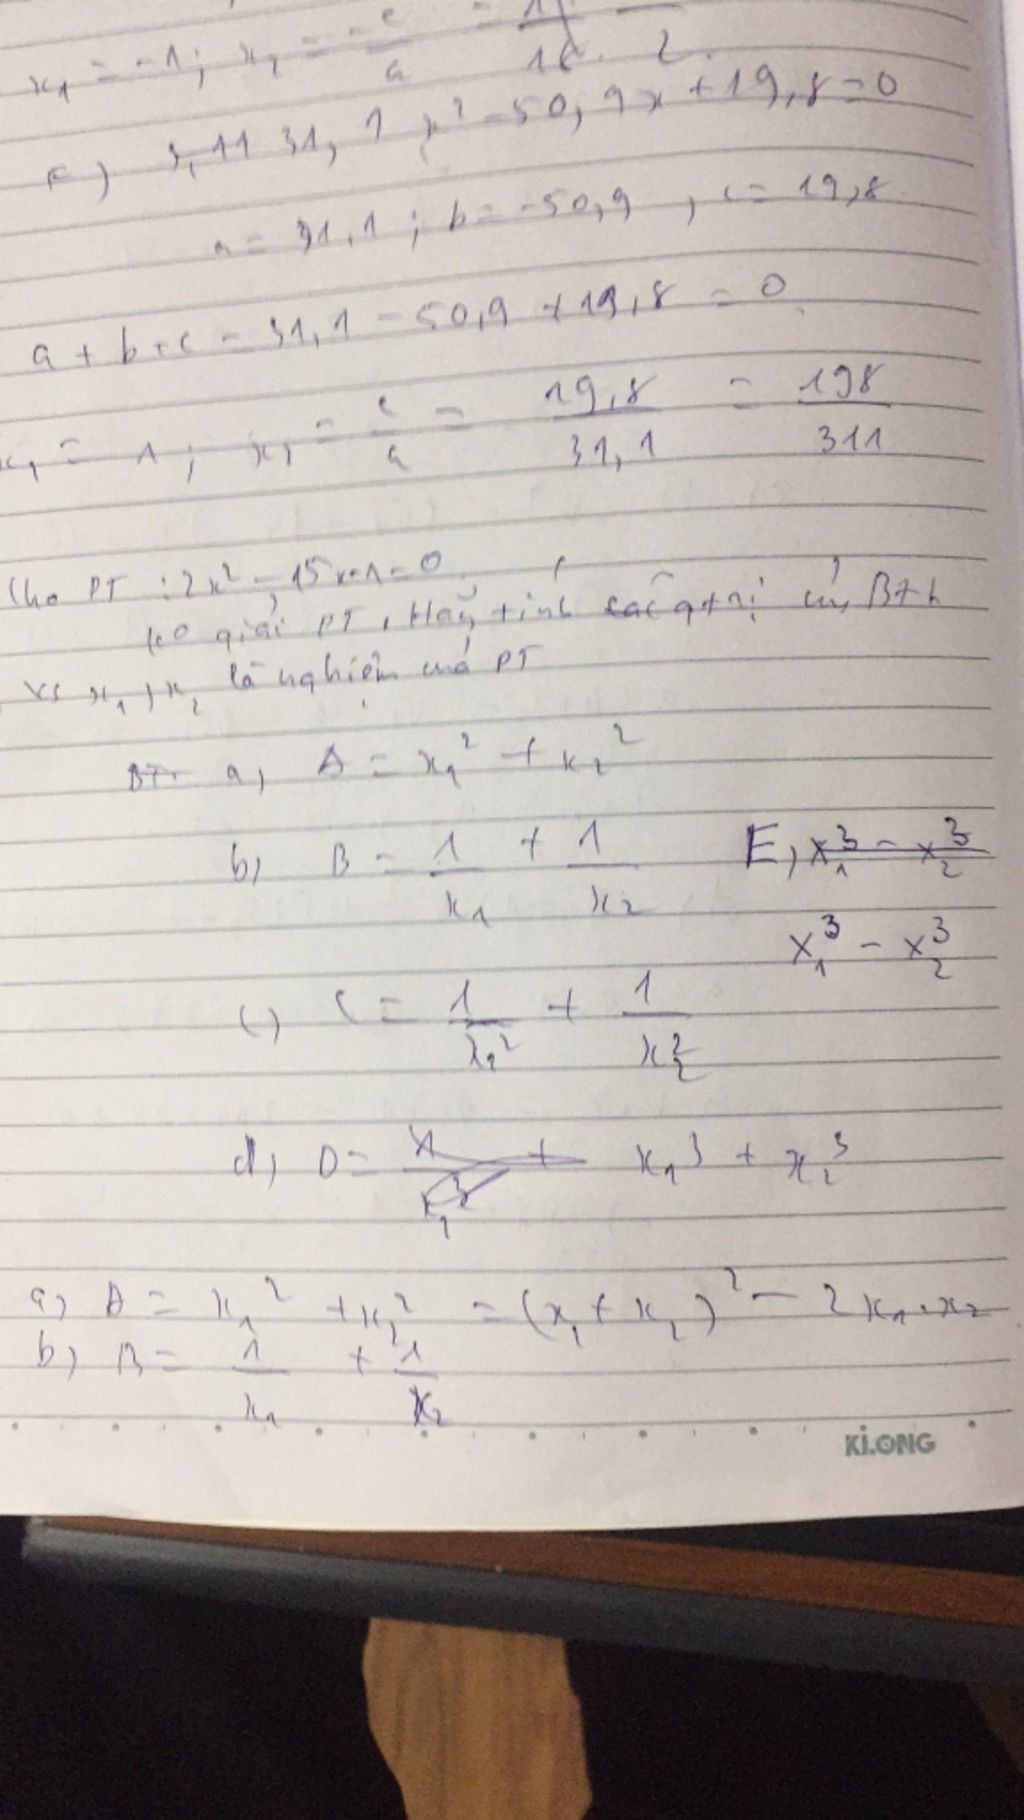 x₁ = -1; x₂ = -c/a =
c) 31,1 x² - 50,9x + 19,8 = 0
a = 31,1 ; b = -50,9 , c = 19,8
a + b + c = 31,1 - 50,9 + 19,8 = 0
x₁ = 1 ; x₂ = c/a = 19,8/31,1 = 198/311
Cho PT : 2x² - 15x + 1 = 0
ko giải PT, Hãy tính các gtrị
vs x₁, x₂ là nghiệm PT
a, A = x₁² + x₂²
b, B = 1/x₁ + 1/x₂ E, x₁³ - x₂³
x₁³ - x₂³
c) C = 1/x₁² + 1/x₂²
d, D = x₁³ + x₂³
a) A = x₁² + x₂² = (x₁ + x₂)² - 2x₁.x₂
b) B = 1/x₁ + 1/x₂
KiLONG